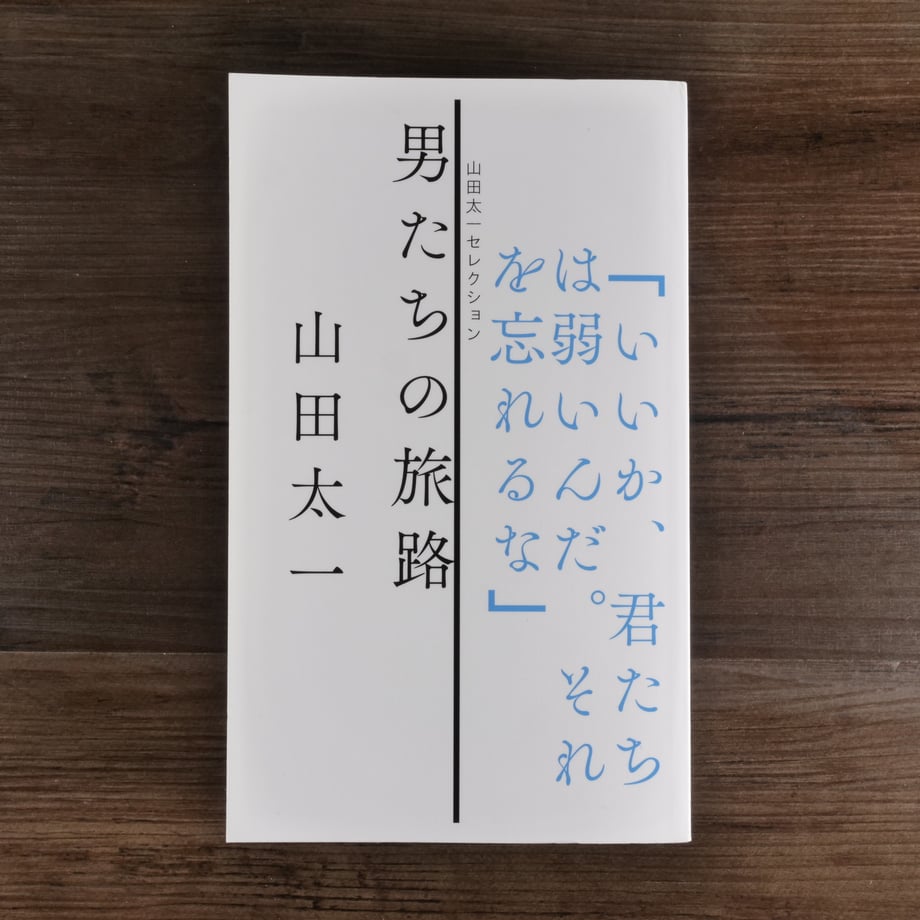 「いいか、君たち
は弱いんだ。それ
を忘れるな」
山田太一セレクション
男たちの旅路
山田太一